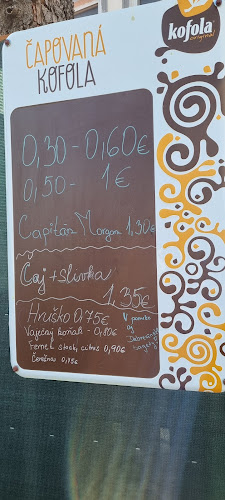 ČAPOVANÁ
KOFOLA
kofola
original
0,30 - 0,60€
0,50 - 1€
Capitán Morgan 1,30€
Čaj + slivka
1,35€
Hruško 0,75€
Vaječný koňak - 0,80€
Fernet stock, citrus 0,90€
V ponuke
aj
kofola